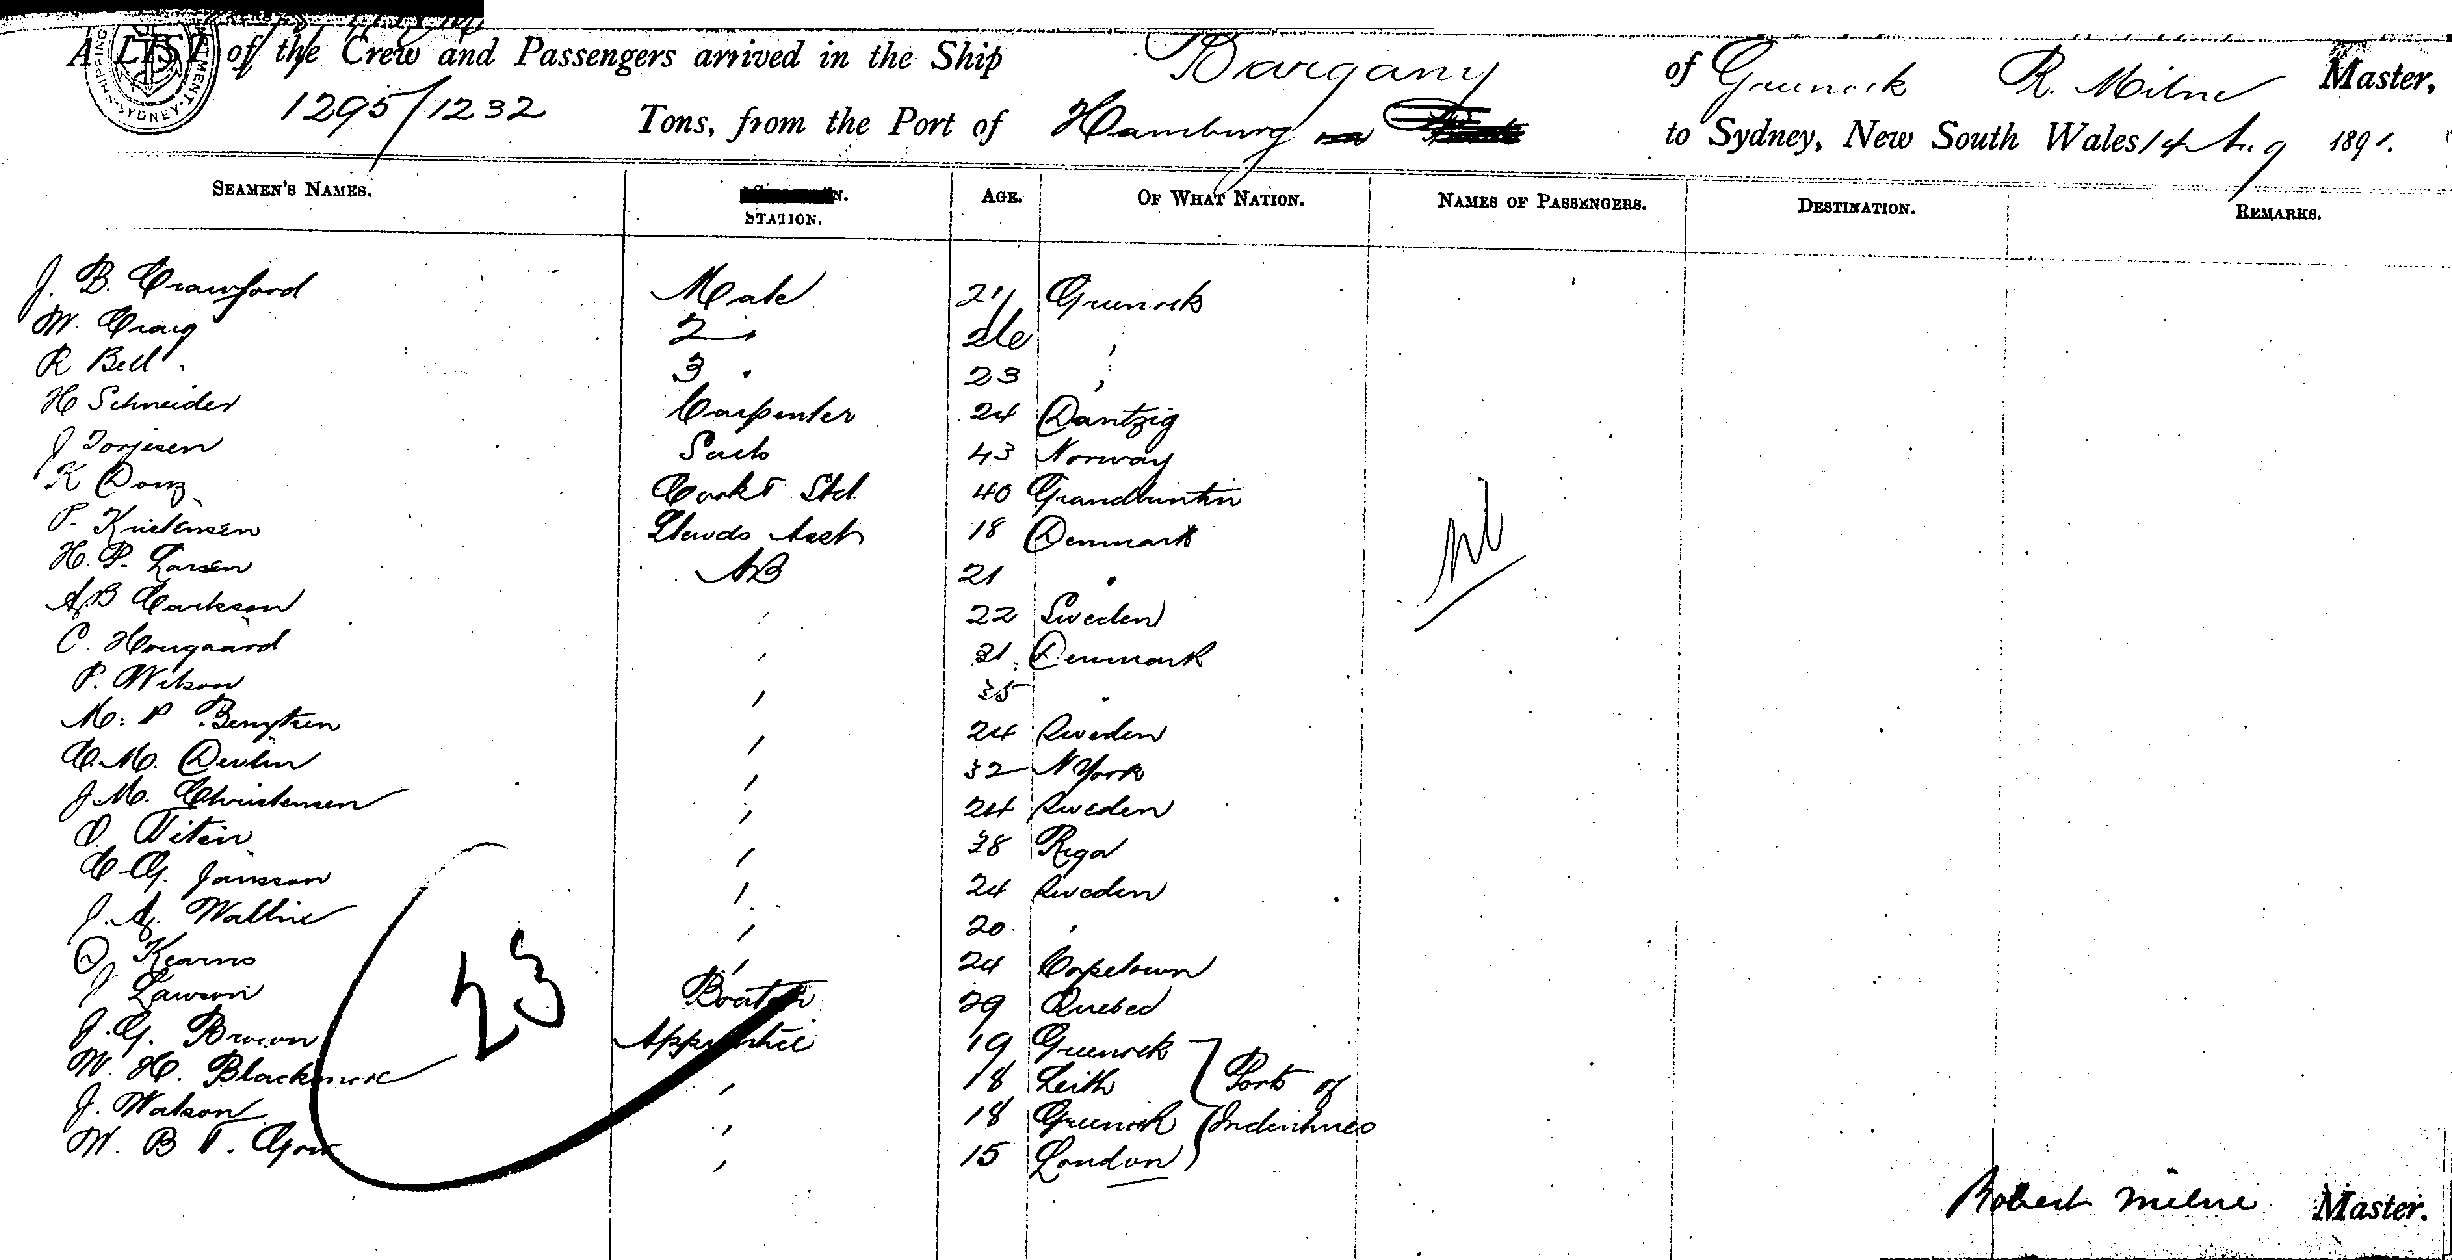 A LIST of the Crew and Passengers arrived in the Ship Bargany of Greenock R. Milne Master,
1295/1232 Tons, from the Port of Hamburg to Sydney, New South Wales 14 Aug 1891.
SEAMEN'S NAMES. STATION. AGE. OF WHAT NATION. NAMES OF PASSENGERS. DESTINATION. REMARKS.
J. B. Crawford Mate Greenock
W. Craig 2 " 26 "
R Bell 3 " 23 "
H Schneider Carpenter 24 Dantzig
J Torjesen 43 Norway
K Cook & Std. 40
P. Kristensen Stewds Asst 18 Denmark
H. P. Larsen AB 21 "
A B " 22 Sweden
C. Hougaard " 31 Denmark
P. Wilson " 35 "
M. P " 24 Sweden
C. M. Devlin " 32 N York
J. M. Christensen " 24 Sweden
" 38 Riga
C. G. Jansson " 24 Sweden
J. A. Wallin " 20 "
Kearns " 24 Capetown
J Lawson Boatsn 29 Quebec
J. G. Brown Apprentice 19 Greenock
W. H. Blackmore " 18 Leith
J. Watson " 18 Greenock
W. B T. Gow " 15 London
Ports of
Indentures
Nil
23
Robert Milne Master.